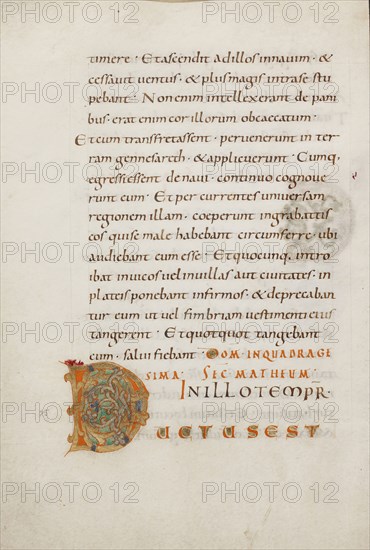 timere · Et ascendit ad illos in navim · &
cessavit ventus · & plus magis intra se stu
pebant · Non enim intellexerant de pani
bus · erat enim cor illorum obcaecatum ·
Et cum transfretassent · pervenerunt in ter
ram gennesareth · & applicuerunt · Cumq,
egressi essent de navi · continuo cognove
runt eum · Et percurrentes universam
regionem illam · coeperunt in grabattis
eos qui se male habebant circumferre · ubi
audiebant eum esse · Et quocunq, intro
ibat in vicos vel in villas aut civitates · in
plateis ponebant infirmos · & deprecaban
tur eum ut vel fimbriam vestimenti eius
tangerent · Et quotquot tangebant
eum · salvi fiebant · DOM · IN QUADRAGE
SIMA · SEC MATHEUM ·
IN ILLO TEMPR ·
DUCTUS EST